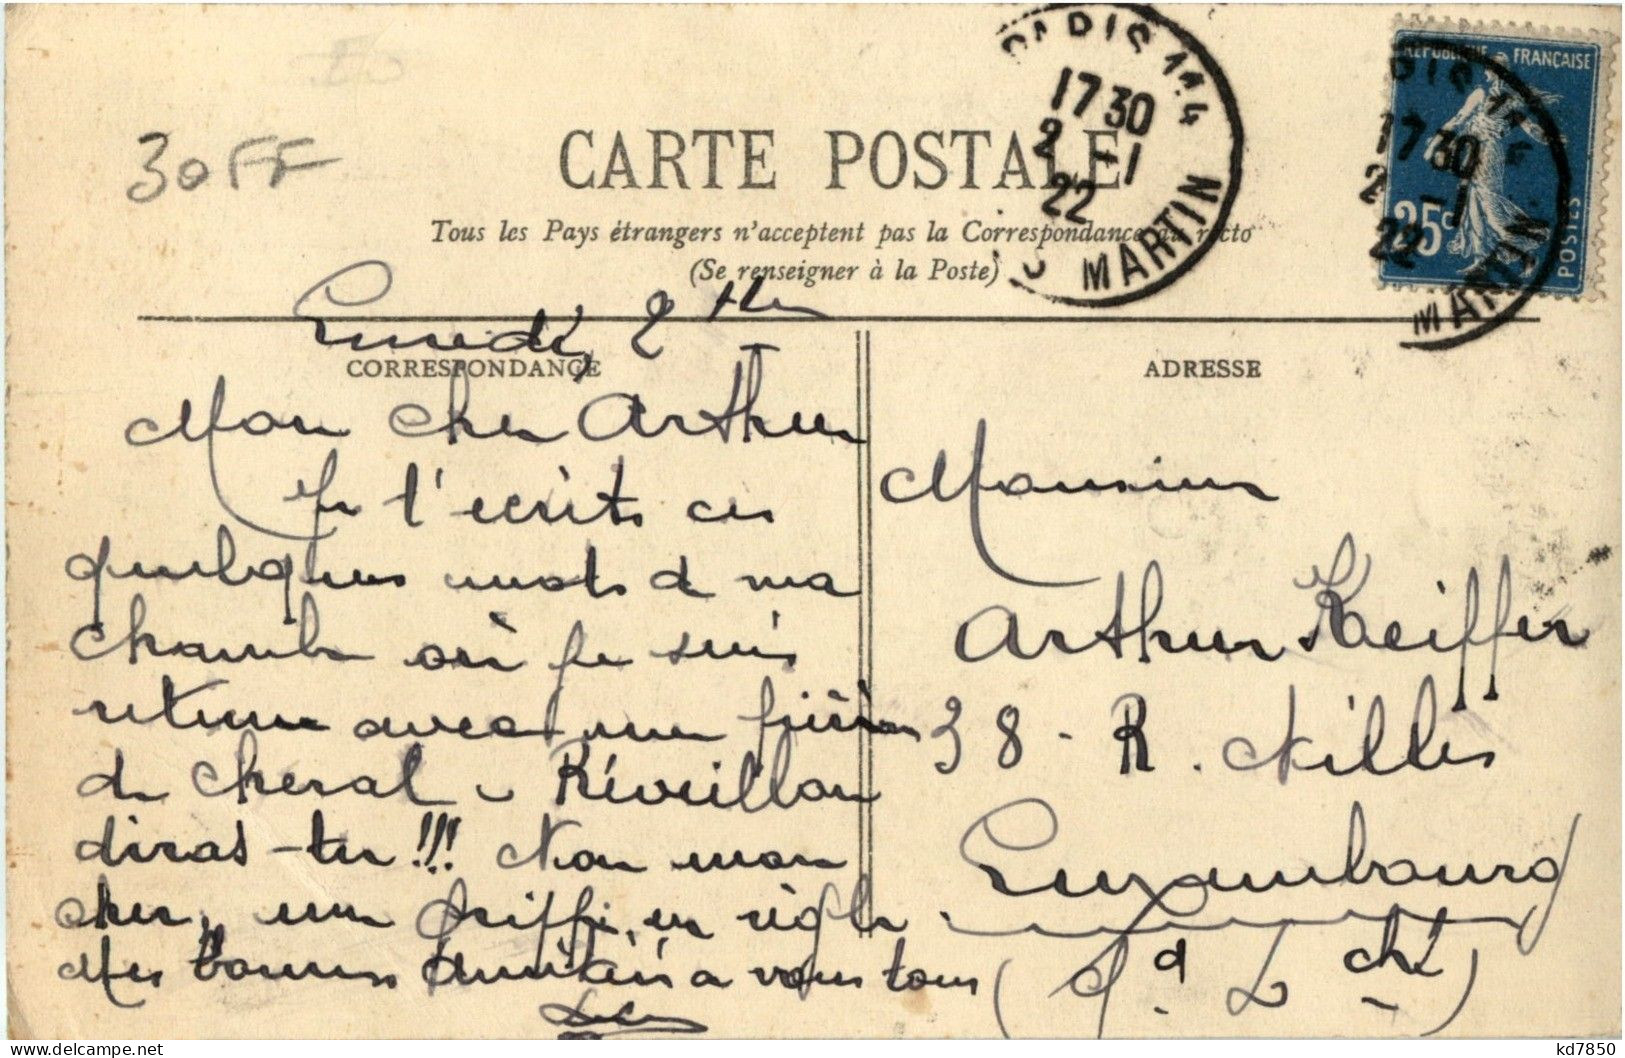 30FF
CARTE POSTALE
Tous les Pays étrangers n'acceptent pas la Correspondance au recto
(Se renseigner à la Poste)
PARIS 114
17 30
2 -1
22
MARTIN
RÉPUBLIQUE FRANÇAISE
25c
POSTES
PARIS 114
17 30
2 -1
22
MARTIN
Lundi, 2
CORRESPONDANCE
ADRESSE
Mon cher Arthur
Je t'écrits ces
quelques mots de ma
chambre où je suis
retenu avec une fièvre
de cheval - Réveillon
diras-tu!!! Non mon
cher, une grippe en règle.
Mes bonnes amitiés a vous tous
Monsieur
Arthur Keiffer
38 - R. Nilles
Luxembourg
(Gd Dché)
kd7850